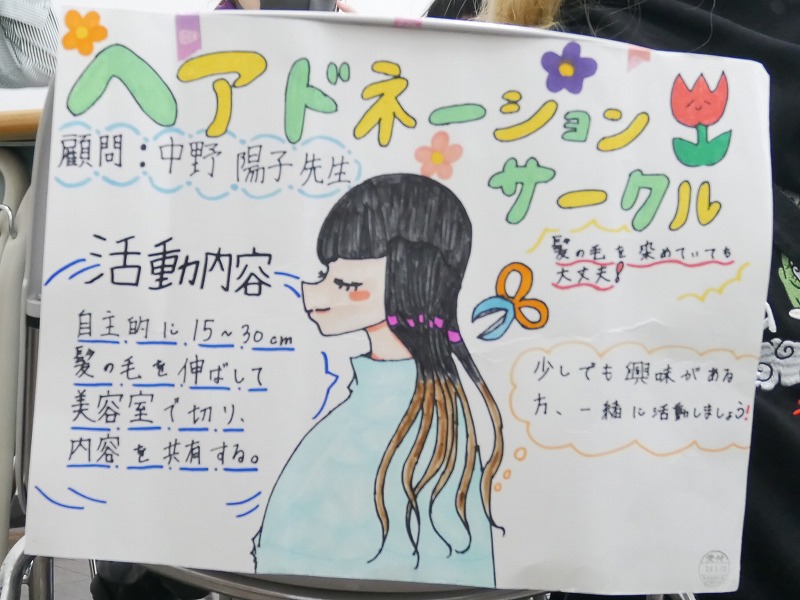 ヘアドネーション
サークル
顧問：中野 陽子先生
髪の毛を染めていても
大丈夫！
活動内容
自主的に15～30cm
髪の毛を伸ばして
美容室で切り、
内容を共有する。
少しでも興味がある
方、一緒に活動しましょう！